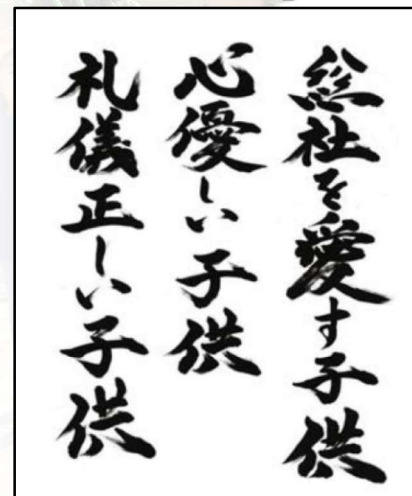 総社を愛す子供
心優しい子供
礼儀正しい子供